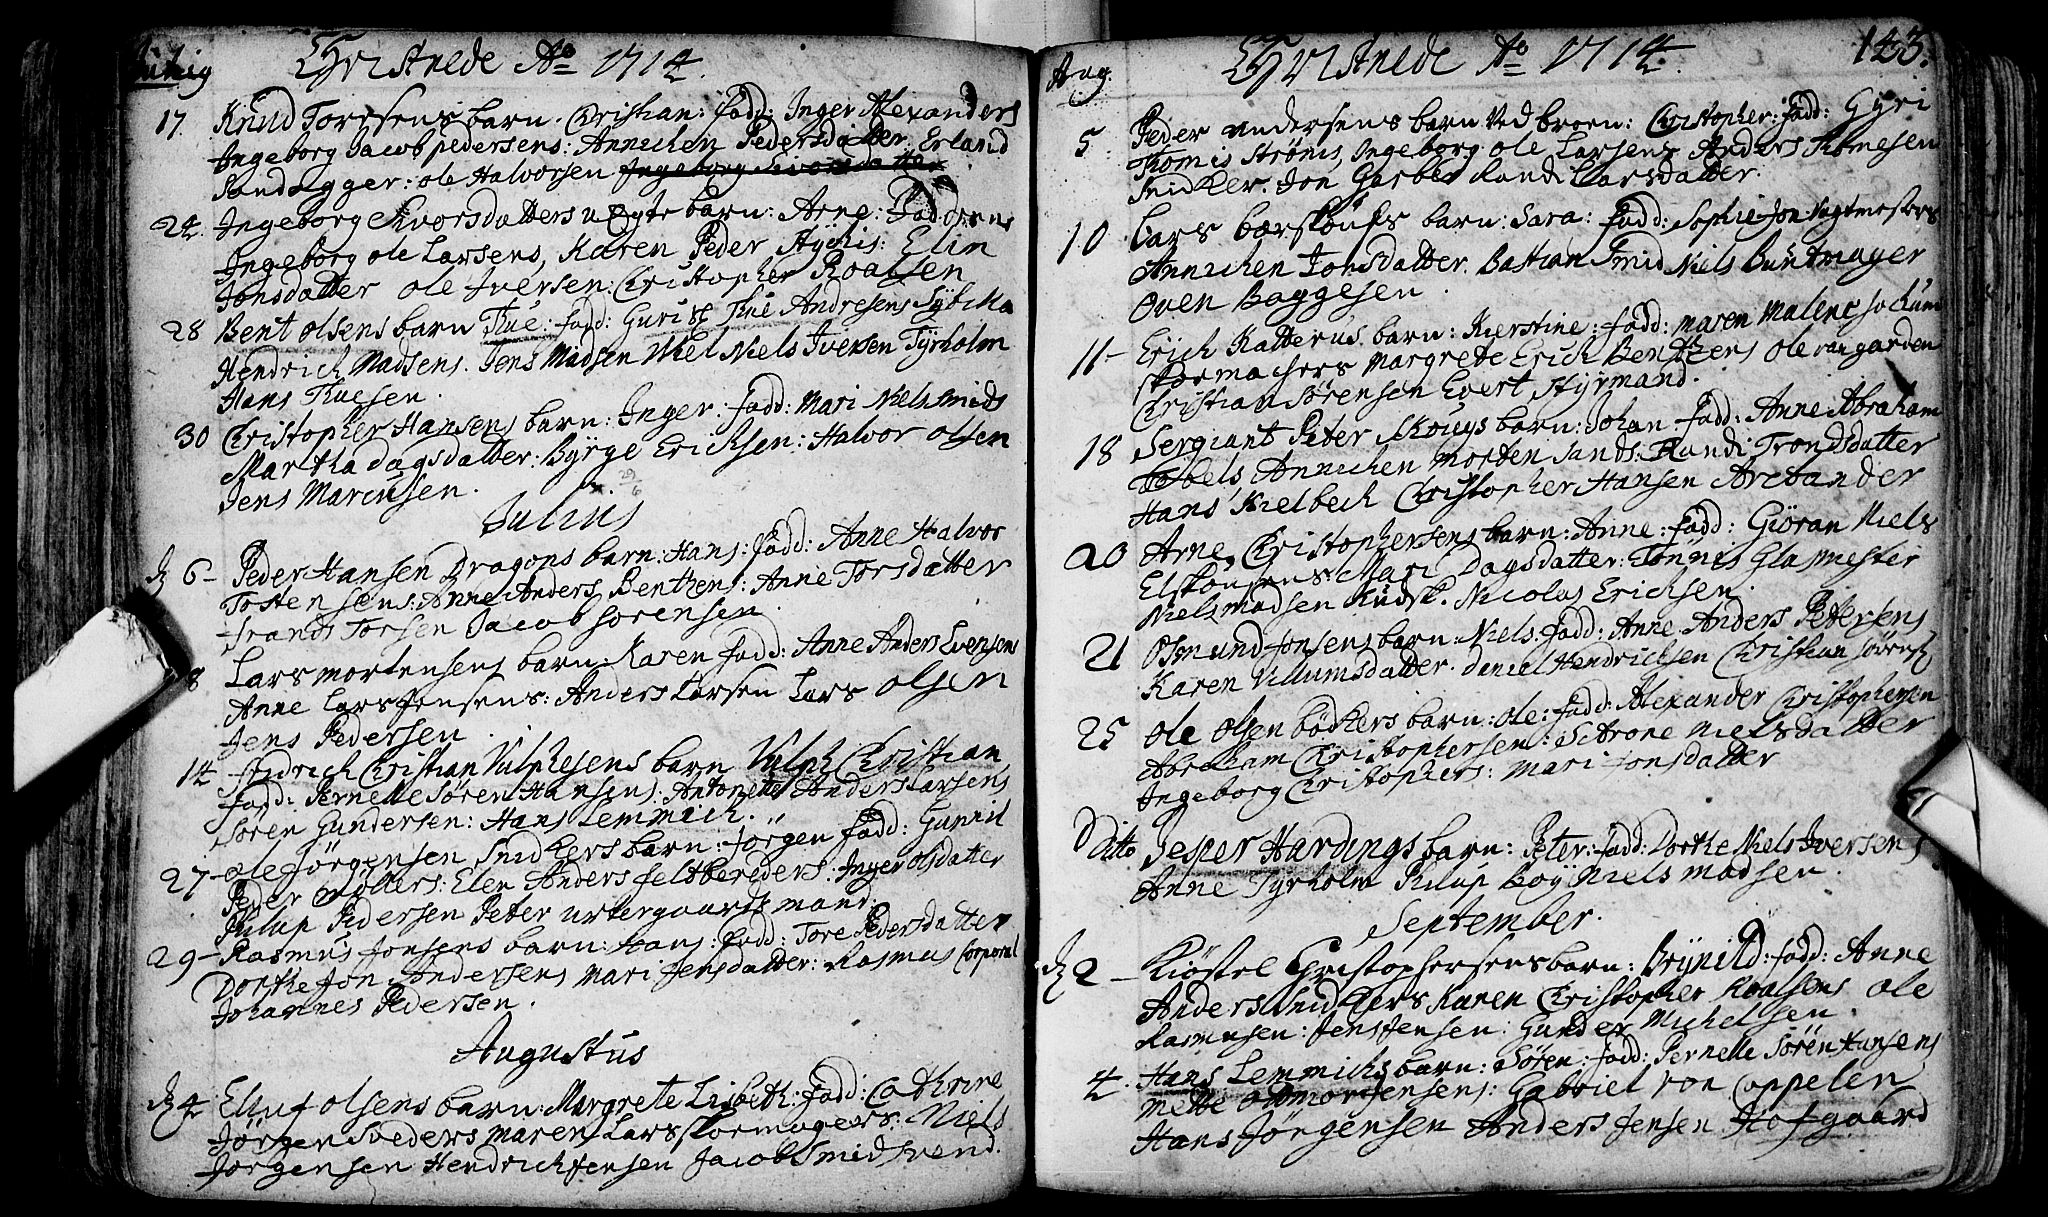 Junig Christnede Ao 1714.
17. Knud Toresens barn. Christian: fadd: Inger Alexanders
Ingeborg Jacob pedersens: Annichen Pedersdatter Erland
Sandagger: ole Halvorsen Ingeborg Sivorsdatter
24. Ingeborg Sivorsdatters uegte barn: Arne: Fadderne
Ingeborg ole Larsens, Karen Peder Elin
Jonsdatter ole Iversen: Christopher Roalsen
28 Bent olsens barn Thue: fadd: Guri Thue Andresens
Hendrich Madsens. Jens Madsen Niels Iversen Tyrholm
Hans Thuesen.
30 Christopher Hansens barn: Inger: fadd: Mari Niels smids
Martha dagsdatter: Byrge Erichsen: Halvor olsen
Jens Marcussen.
29/6
Julius
6- Peder Hansen Dragons barn: Hans: fadd: Anne Halvor
Tostensens: Anne Anders Benthens: Anne Torsdatter
frands Torsen Jacob sorensen.
8 Lars mortensens barn: Karen fadd: Anne Anders Evensens
Anne Lars Jensens: Anders Larsen Lars olsen
Jens Pedersen.
14 Fridrich Christian Vulphesens barn Vulph Christian
fadd: Pernelle Søren Hansens: Antonette Anders Larsens
Søren Gundersen: Hans Lemmich.
27- ole Jørgensen Snidkers barn: Jørgen fadd: Gunnil
Peder Møllers: Elen Anders feltbereders: Inger olsdatter
Philup Pedersen Peter urtegaardsmand.
29- Rasmus Jonsens barn: Hans: fadd: Tore Pedersdatter
Dorthe Jon Andersens Mari Jensdatter: Rasmus Corporal
Johannes Pedersen.
Augustus
4 Elluf olsens barn: Margrete Lisbeth: fadd: Cathrine
Jørgen Sveders maren Lars skoemagers: Niels
Jørgensen Hendrich Jensen Jacob Smidsvend.
Aug. Christnede Ao 1714. 143.
5 Peder Andersens barn ved broen: Christopher: fadd: Gyri
Thomis Strøms, Ingeborg ole Larsens Anders Thomesen
snidker. Jon Garber Randi Larsdatter.
10 Lars barn: Sara: fadd: Sophie Jon Vagtmesters
Annichen Jonsdatter. Bastian Smid Niels Buntmager
Oven Baggesen.
11- Erich barn: Kierstine: fadd: maren Malene
skoemachers Margrete Erich Benthens ole van garden
Christian Sørensen Evert Styrmand.
18 Sergiant Peter barn: Johan fadd: Anne Abraham
Annichen Morten Sands: Randi Trondsdatter
Hans Kielbech Christopher Hansen Arebander
20 Arne Christophersens barn: Anne: fadd: Giøran Niels
Mari Dagsdatter: Tønnes Glasmester
Niels madsen Kudsk. Nicolas Erichsen.
21 Osmund Jonsens barn: Niels: fadd: Anne Anders Petersens
Karen Villumsdatter. Daniel Hendrichsen Christian Sørens
25 ole olsen bødkers barn: ole: fadd: Alexander Christophersen
Abraham Christophersen: Nielsdatter
Ingeborg Christophers: Mari Jonsdatter
Ditto Jesper Hardings barn: Peter: fadd: Dorthe Niels Iversens
Anne Tyrholm Philup Boy Niels madsen.
September.
2- Kiøstel Christophersens barn: Brynild: fadd: Anne
Anders snidkers Karen Christopher Roalsens ole
Rasmusen: Jens Jensen: Gunder Michelsen.
4. Hans Lemmichs barn: Søren: fadd: Pernelle Søren Hansens
Mette Gabriel von Cappelen
Hans Jørgensen Anders Jensen Hofgaard